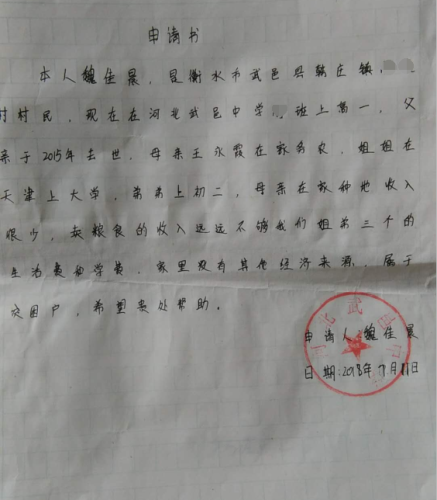 申请书
本人魏佳晨，是衡水市武邑县韩庄镇
村村民，现在在河北武邑中学 班上高一，父
亲于2015年去世，母亲王永霞在家务农，姐姐在
天津上大学，弟弟上初二，母亲在家种地收入
很少，卖粮食的收入远远不够我们姐弟三个的
生活费和学费，家里没有其他经济来源，属于
贫困户，希望 处帮助。
申请人魏佳晨
日期：2018年7月11日
河北武邑